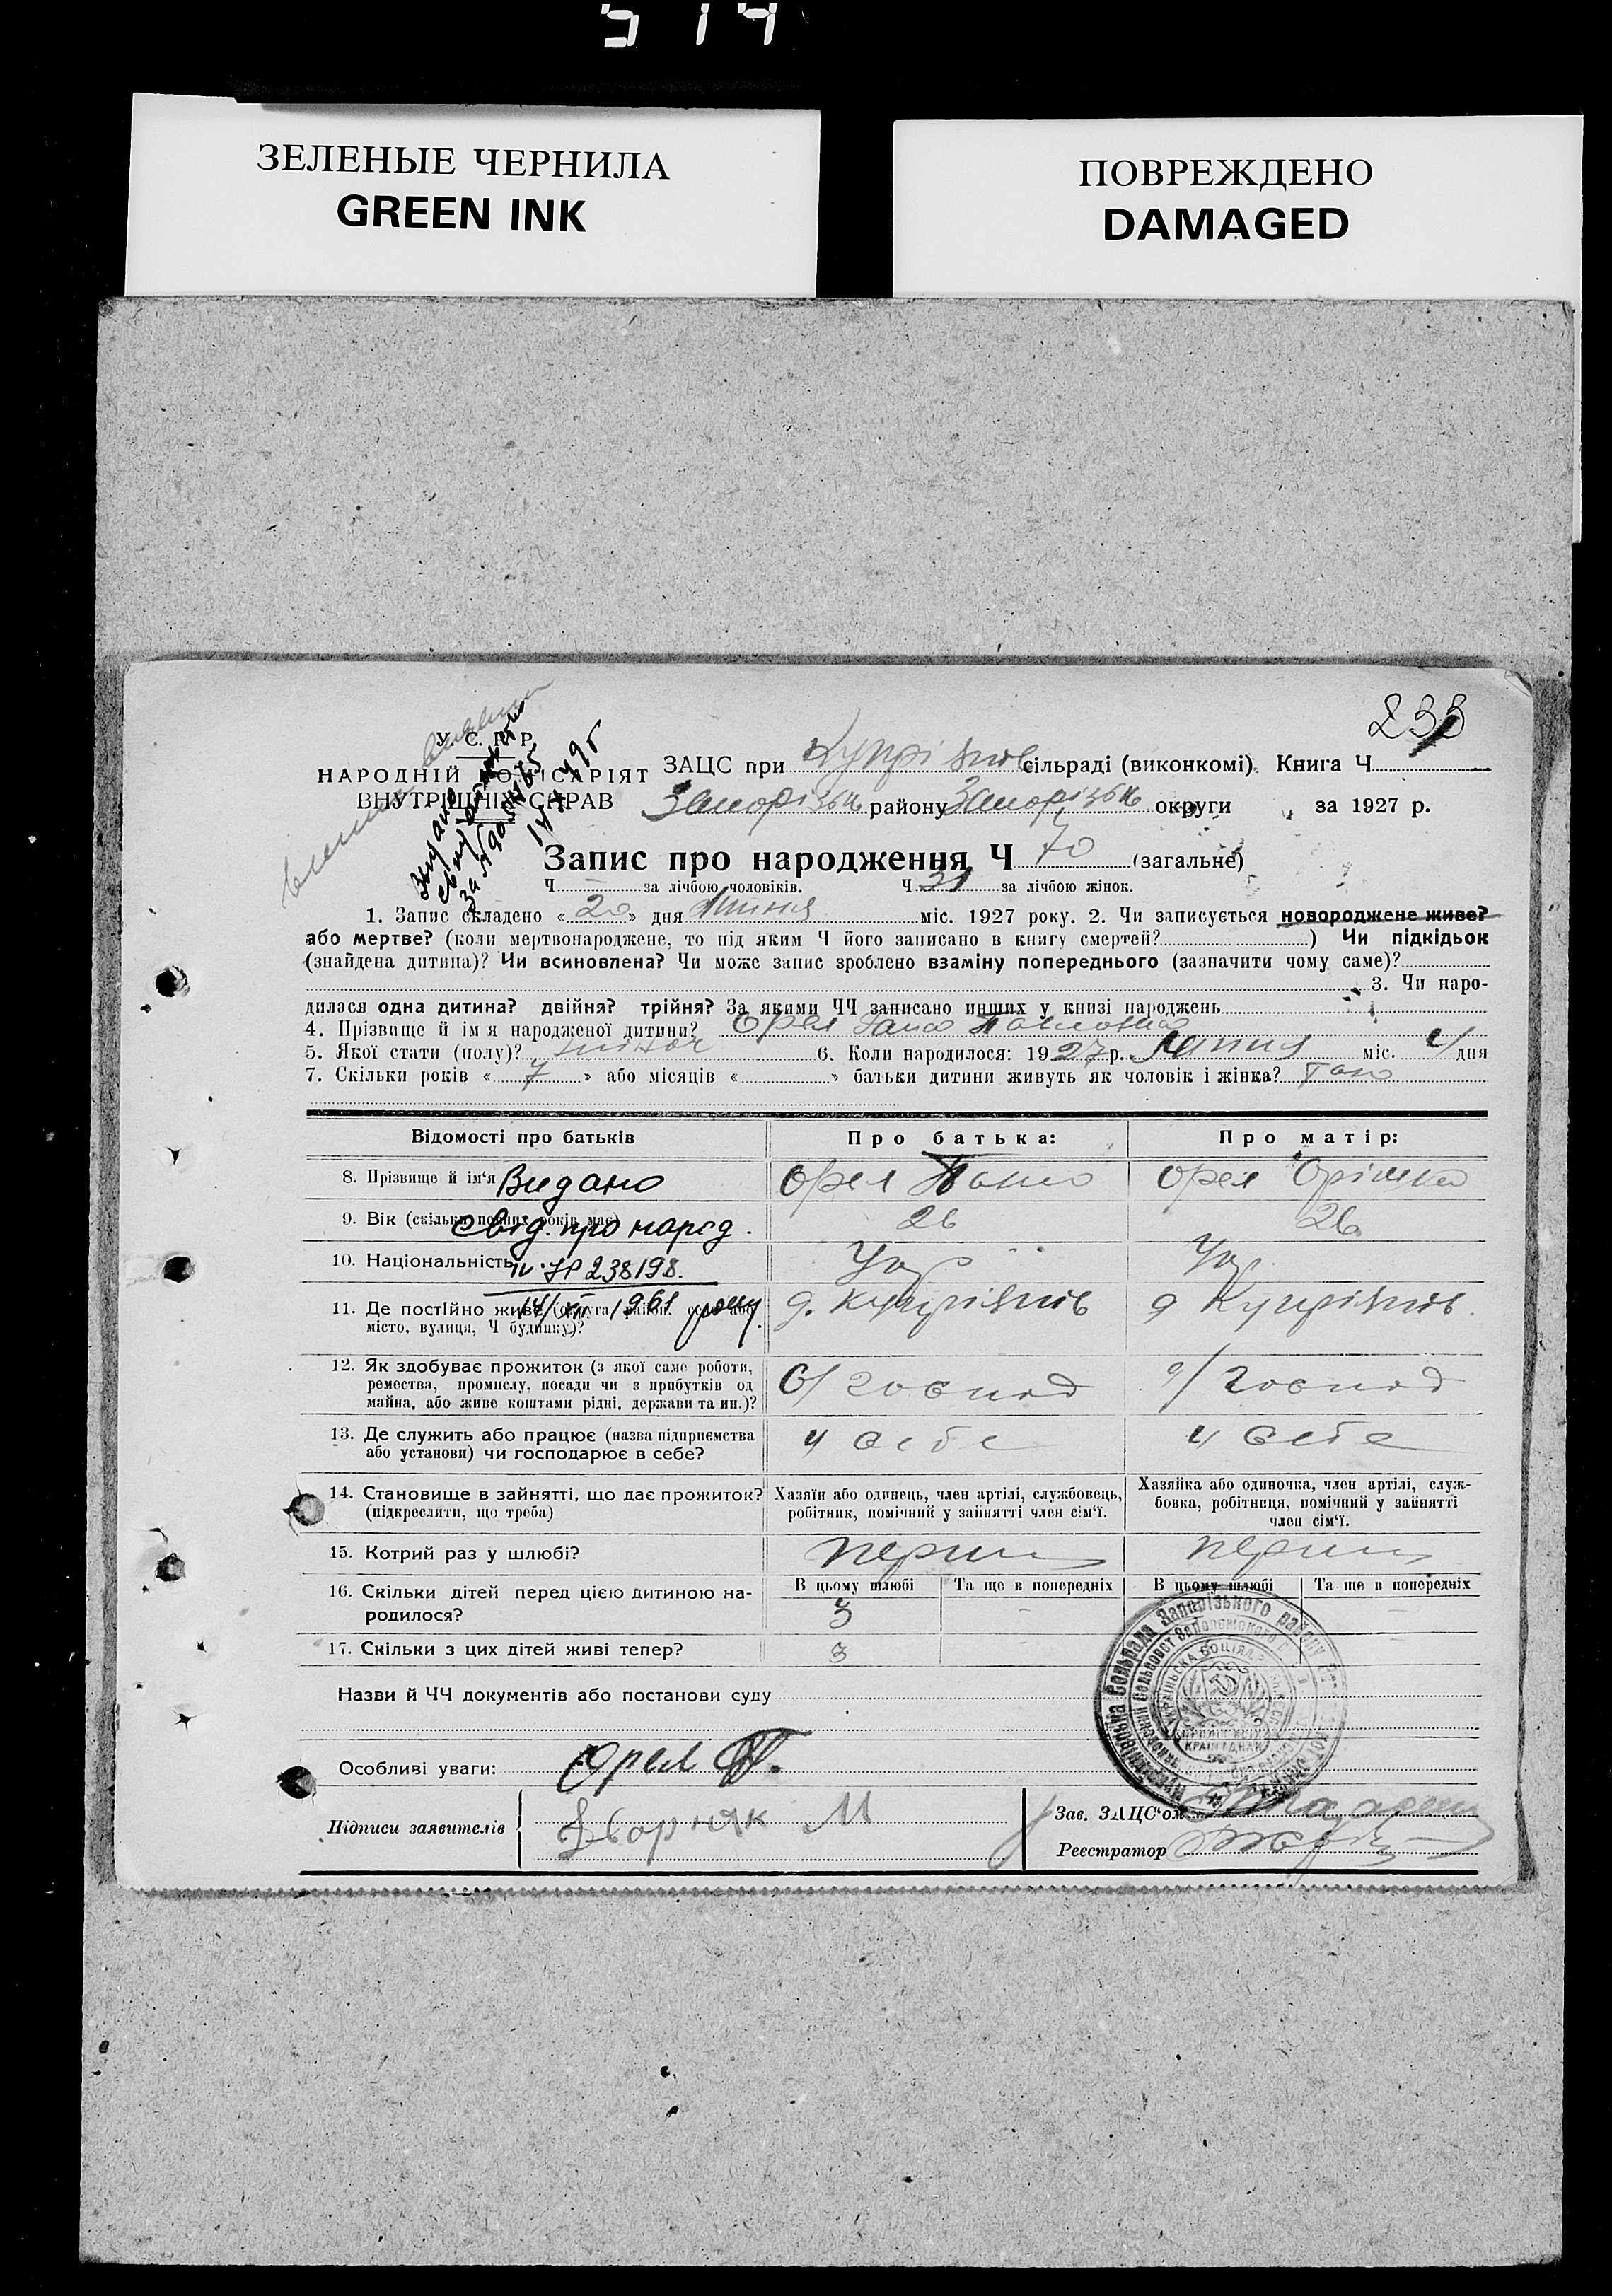 514
ЗЕЛЕНЫЕ ЧЕРНИЛА
GREEN INK
ПОВРЕЖДЕНО
DAMAGED
233
У. С. Р. Р.
НАРОДНІЙ КОМІСАРІЯТ
ВНУТРІШНІХ СПРАВ
ЗАЦС при Купріянів сільраді (виконкомі). Книга Ч
Запорізьк району Запорізьк округи за 1927 р.
Запис про народження Ч 70 (загальне)
Ч за лічбою чоловіків. Ч 31 за лічбою жінок.
1. Запис складено « 20 » дня Липня міс. 1927 року. 2. Чи записується новороджене живе?
або мертве? (коли мертвонароджене, то під яким Ч його записано в книгу смертей? ) Чи підкідьок
(знайдена дитина)? Чи всиновлена? Чи може запис зроблено взаміну попереднього (зазначити чому саме)?
3. Чи наро-
дилася одна дитина? двійня? трійня? За якими ЧЧ записано инших у книзі народжень
4. Прізвище й ім'я народженої дитини? Орел Павловна
5. Якої стати (полу)? жіноч 6. Коли народилося: 1927 р. Липня міс. 4 дня
7. Скільки років « 7 » або місяців « » батьки дитини живуть як чоловік і жінка? Тако
Відомості про батьків
Про батька:
Про матір:
8. Прізвище й ім'я Видано Орел Павло Орел Орішка
9. Вік (скільки повних років має) свід. про народ. 26 26
10. Національність 238198. Укр Укр
11. Де постійно живе (округа, район, село або 14/XII 1961 року. с. Купріянів с Купріянів
місто, вулиця, Ч будинку)?
12. Як здобуває прожиток (з якої саме роботи,
ремества, промислу, посади чи з прибутків од
майна, або живе коштами рідні, держави та ин.)? с/господ с/господ
13. Де служить або працює (назва підприємства
або установи) чи господарює в себе? у себе у себе
14. Становище в зайнятті, що дає прожиток?
(підкреслити, що треба)
Хазяїн або одинець, член артілі, службовець,
робітник, помічний у зайнятті член сім'ї.
Хазяйка або одиночка, член артілі, служ-
бовка, робітниця, помічний у зайнятті
член сім'ї.
15. Котрий раз у шлюбі? перший перший
16. Скільки дітей перед цією дитиною на-
родилося?
В цьому шлюбі Та ще в попередніх В цьому шлюбі Та ще в попередніх
3
17. Скільки з цих дітей живі тепер? 3
Назви й ЧЧ документів або постанови суду
Особливі уваги: Орел П.
Підписи заявителів Дворняк М
Зав. ЗАЦС'ом
Реєстратор